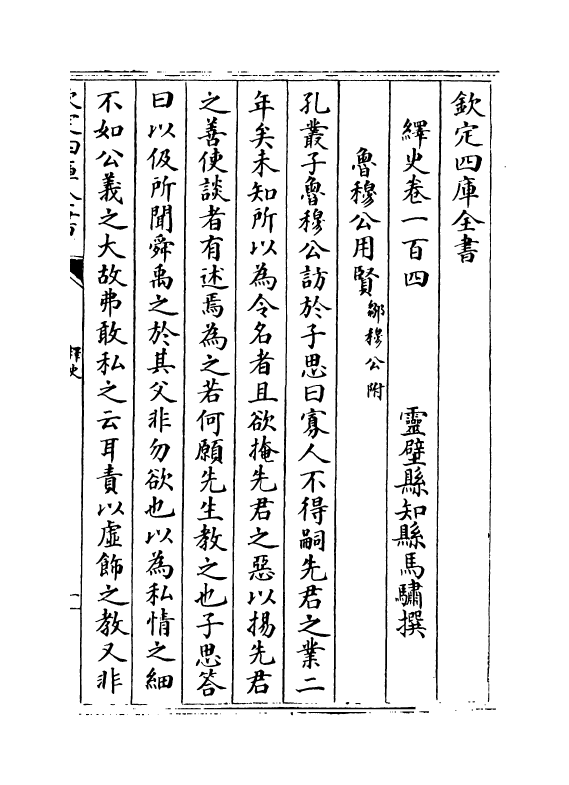 欽定四庫全書
繹史卷一百四
靈壁縣知縣馬驌撰
魯穆公用賢鄒穆公附
孔叢子魯穆公訪於子思曰寡人不得嗣先君之業二
年矣未知所以為令名者且欲掩先君之惡以揚先君
之善使談者有述焉為之若何願先生教之也子思答
曰以伋所聞舜禹之於其父非勿欲也以為私情之細
不如公義之大故弗敢私之云耳責以虛飾之教又非
欽定四庫全書
繹史
一